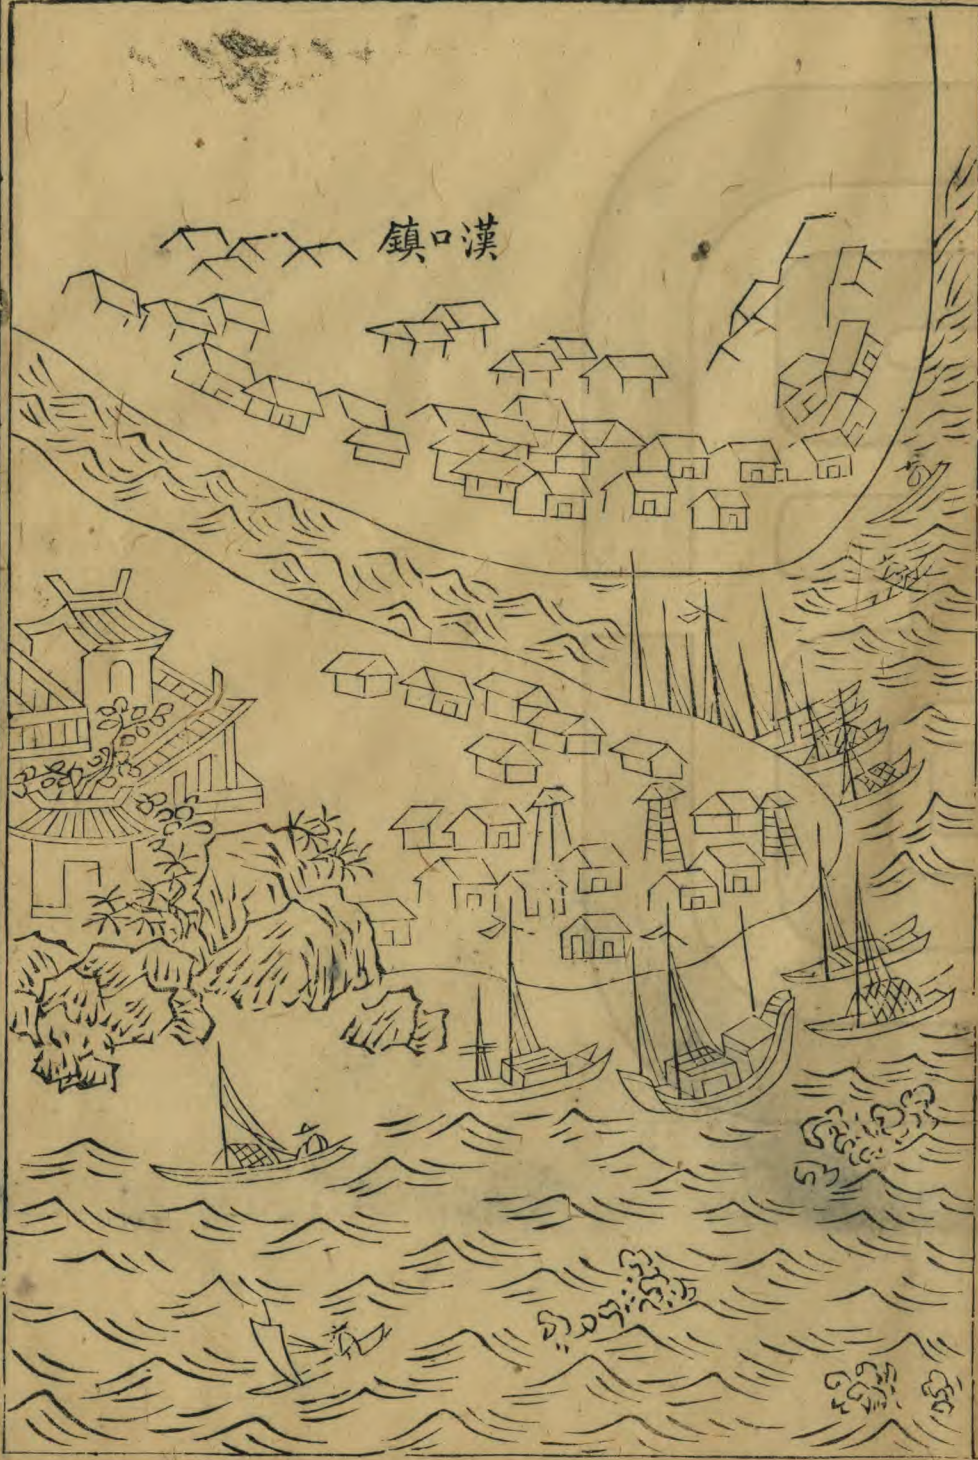 漢口鎮